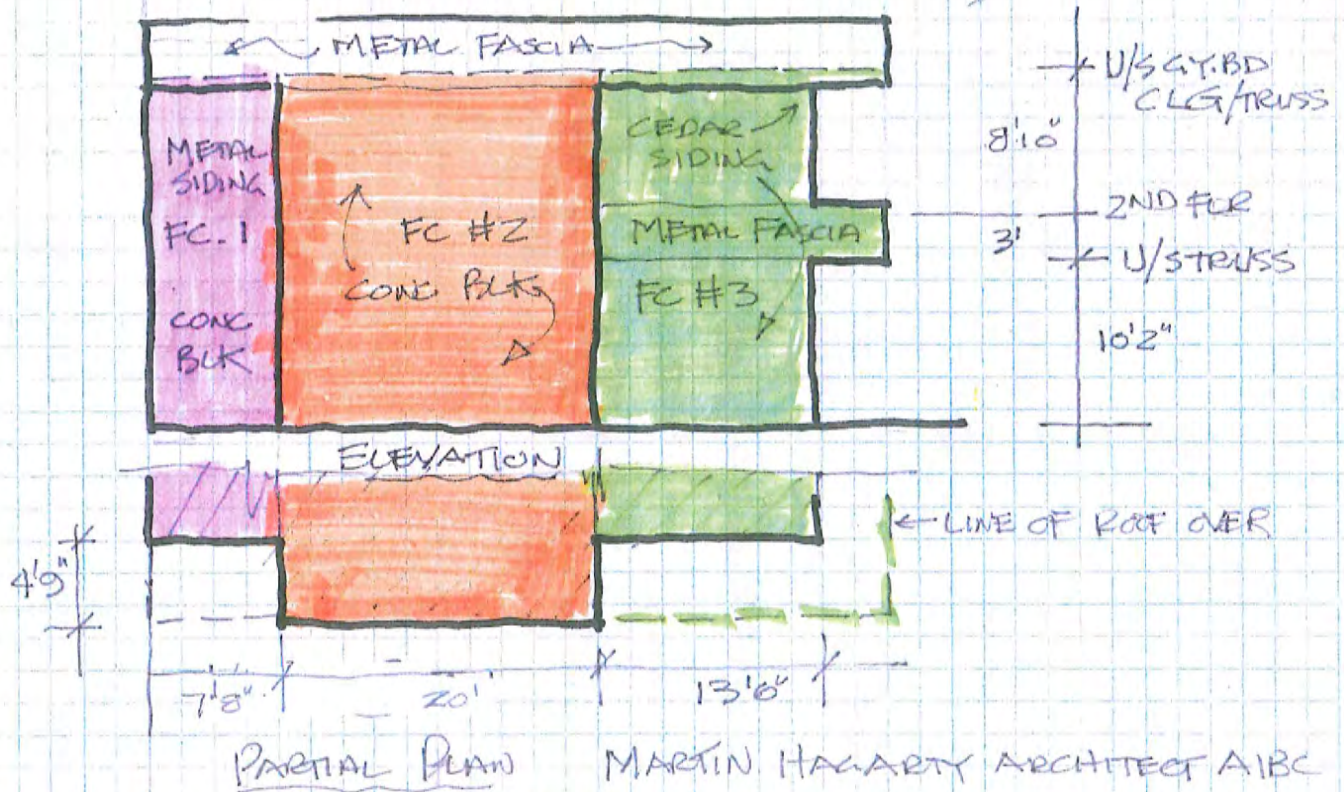 METAL FASCIA
U/S GY.BD
CLG/TRUSS
METAL
SIDING
FC. 1
CONC
BLK
FC #2
CONC BLK
CEDAR
SIDING
METAL FASCIA
FC #3
8'10"
2ND FLR
3'
U/S TRUSS
10'2"
ELEVATION
LINE OF ROOF OVER
4'9"
7'8"
20'
13'6"
PARTIAL PLAN
MARTIN HAGARTY ARCHITECT AIBC